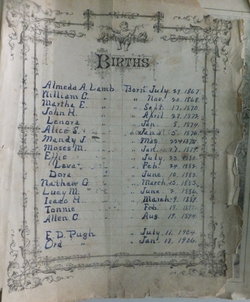 BIRTHS
Almeda A. Lamb Born July 27, 1867.
William C. " Nov. 20, 1868.
Martha E. " Sept. 17, 1870.
John H. " April 27, 1872.
Lenora " Jan.
Alice S. " Jan.
Mandy J. "
Moses M. " Jan.
Effie " July 22, 1880.
Lova " Feb.
Dora " June 10, 1883.
Nathew G. " March 10, 1885.
Lucy M. " June
Icado H. " March 9, 1887.
Tommie " Feb.
Allen C. " Aug. 19,
E. D. Pugh " July 11, 1904.
Ord " Jan. 18, 1906.